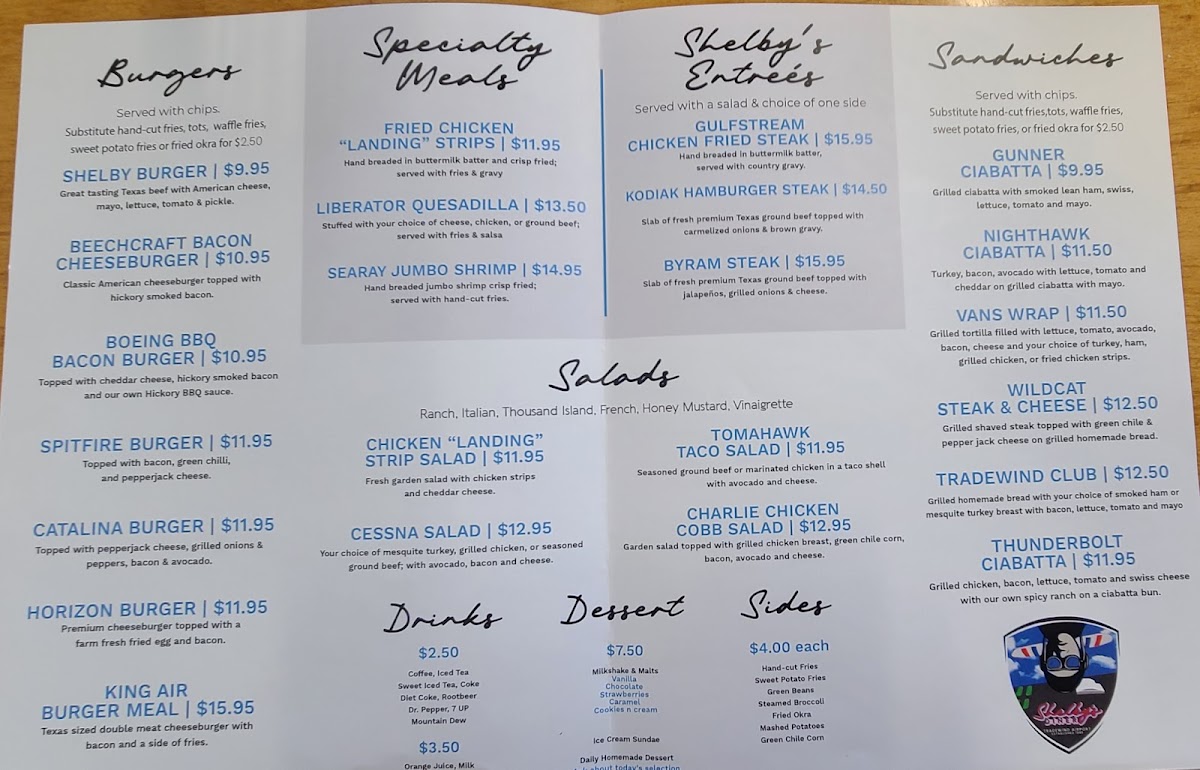 Burgers
Served with chips.
Substitute hand-cut fries, tots, waffle fries,
sweet potato fries or fried okra for $2.50
SHELBY BURGER | $9.95
Great tasting Texas beef with American cheese,
mayo, lettuce, tomato & pickle.
BEECHCRAFT BACON
CHEESEBURGER | $10.95
Classic American cheeseburger topped with
hickory smoked bacon.
BOEING BBQ
BACON BURGER | $10.95
Topped with cheddar cheese, hickory smoked bacon
and our own Hickory BBQ sauce.
SPITFIRE BURGER | $11.95
Topped with bacon, green chilli,
and pepperjack cheese.
CATALINA BURGER | $11.95
Topped with pepperjack cheese, grilled onions &
peppers, bacon & avocado.
HORIZON BURGER | $11.95
Premium cheeseburger topped with a
farm fresh fried egg and bacon.
KING AIR
BURGER MEAL | $15.95
Texas sized double meat cheeseburger with
bacon and a side of fries.
Specialty
Meals
FRIED CHICKEN
“LANDING” STRIPS | $11.95
Hand breaded in buttermilk batter and crisp fried;
served with fries & gravy
LIBERATOR QUESADILLA | $13.50
Stuffed with your choice of cheese, chicken, or ground beef;
served with fries & salsa
SEARAY JUMBO SHRIMP | $14.95
Hand breaded jumbo shrimp crisp fried;
served with hand-cut fries.
Shelby's
Entreés
Served with a salad & choice of one side
GULFSTREAM
CHICKEN FRIED STEAK | $15.95
Hand breaded in buttermilk batter,
served with country gravy.
KODIAK HAMBURGER STEAK | $14.50
Slab of fresh premium Texas ground beef topped with
carmelized onions & brown gravy.
BYRAM STEAK | $15.95
Slab of fresh premium Texas ground beef topped with
jalapeños, grilled onions & cheese.
Salads
Ranch, Italian, Thousand Island, French, Honey Mustard, Vinaigrette
CHICKEN “LANDING”
STRIP SALAD | $11.95
Fresh garden salad with chicken strips
and cheddar cheese.
CESSNA SALAD | $12.95
Your choice of mesquite turkey, grilled chicken, or seasoned
ground beef; with avocado, bacon and cheese.
TOMAHAWK
TACO SALAD | $11.95
Seasoned ground beef or marinated chicken in a taco shell
with avocado and cheese.
CHARLIE CHICKEN
COBB SALAD | $12.95
Garden salad topped with grilled chicken breast, green chile corn,
bacon, avocado and cheese.
Drinks
$2.50
Coffee, Iced Tea
Sweet Iced Tea, Coke
Diet Coke, Rootbeer
Dr. Pepper, 7 UP
Mountain Dew
$3.50
Orange Juice, Milk
Dessert
$7.50
Milkshake & Malts
Vanilla
Chocolate
Strawberries
Caramel
Cookies n cream
Ice Cream Sundae
Daily Homemade Dessert
Ask about today's selection
Sides
$4.00 each
Hand-cut Fries
Sweet Potato Fries
Green Beans
Steamed Broccoli
Fried Okra
Mashed Potatoes
Green Chile Corn
Sandwiches
Served with chips.
Substitute hand-cut fries,tots, waffle fries,
sweet potato fries, or fried okra for $2.50
GUNNER
CIABATTA | $9.95
Grilled ciabatta with smoked lean ham, swiss,
lettuce, tomato and mayo.
NIGHTHAWK
CIABATTA | $11.50
Turkey, bacon, avocado with lettuce, tomato and
cheddar on grilled ciabatta with mayo.
VANS WRAP | $11.50
Grilled tortilla filled with lettuce, tomato, avocado,
bacon, cheese and your choice of turkey, ham,
grilled chicken, or fried chicken strips.
WILDCAT
STEAK & CHEESE | $12.50
Grilled shaved steak topped with green chile &
pepper jack cheese on grilled homemade bread.
TRADEWIND CLUB | $12.50
Grilled homemade bread with your choice of smoked ham or
mesquite turkey breast with bacon, lettuce, tomato and mayo
THUNDERBOLT
CIABATTA | $11.95
Grilled chicken, bacon, lettuce, tomato and swiss cheese
with our own spicy ranch on a ciabatta bun.
Shelby's
TRADEWIND AIRPORT